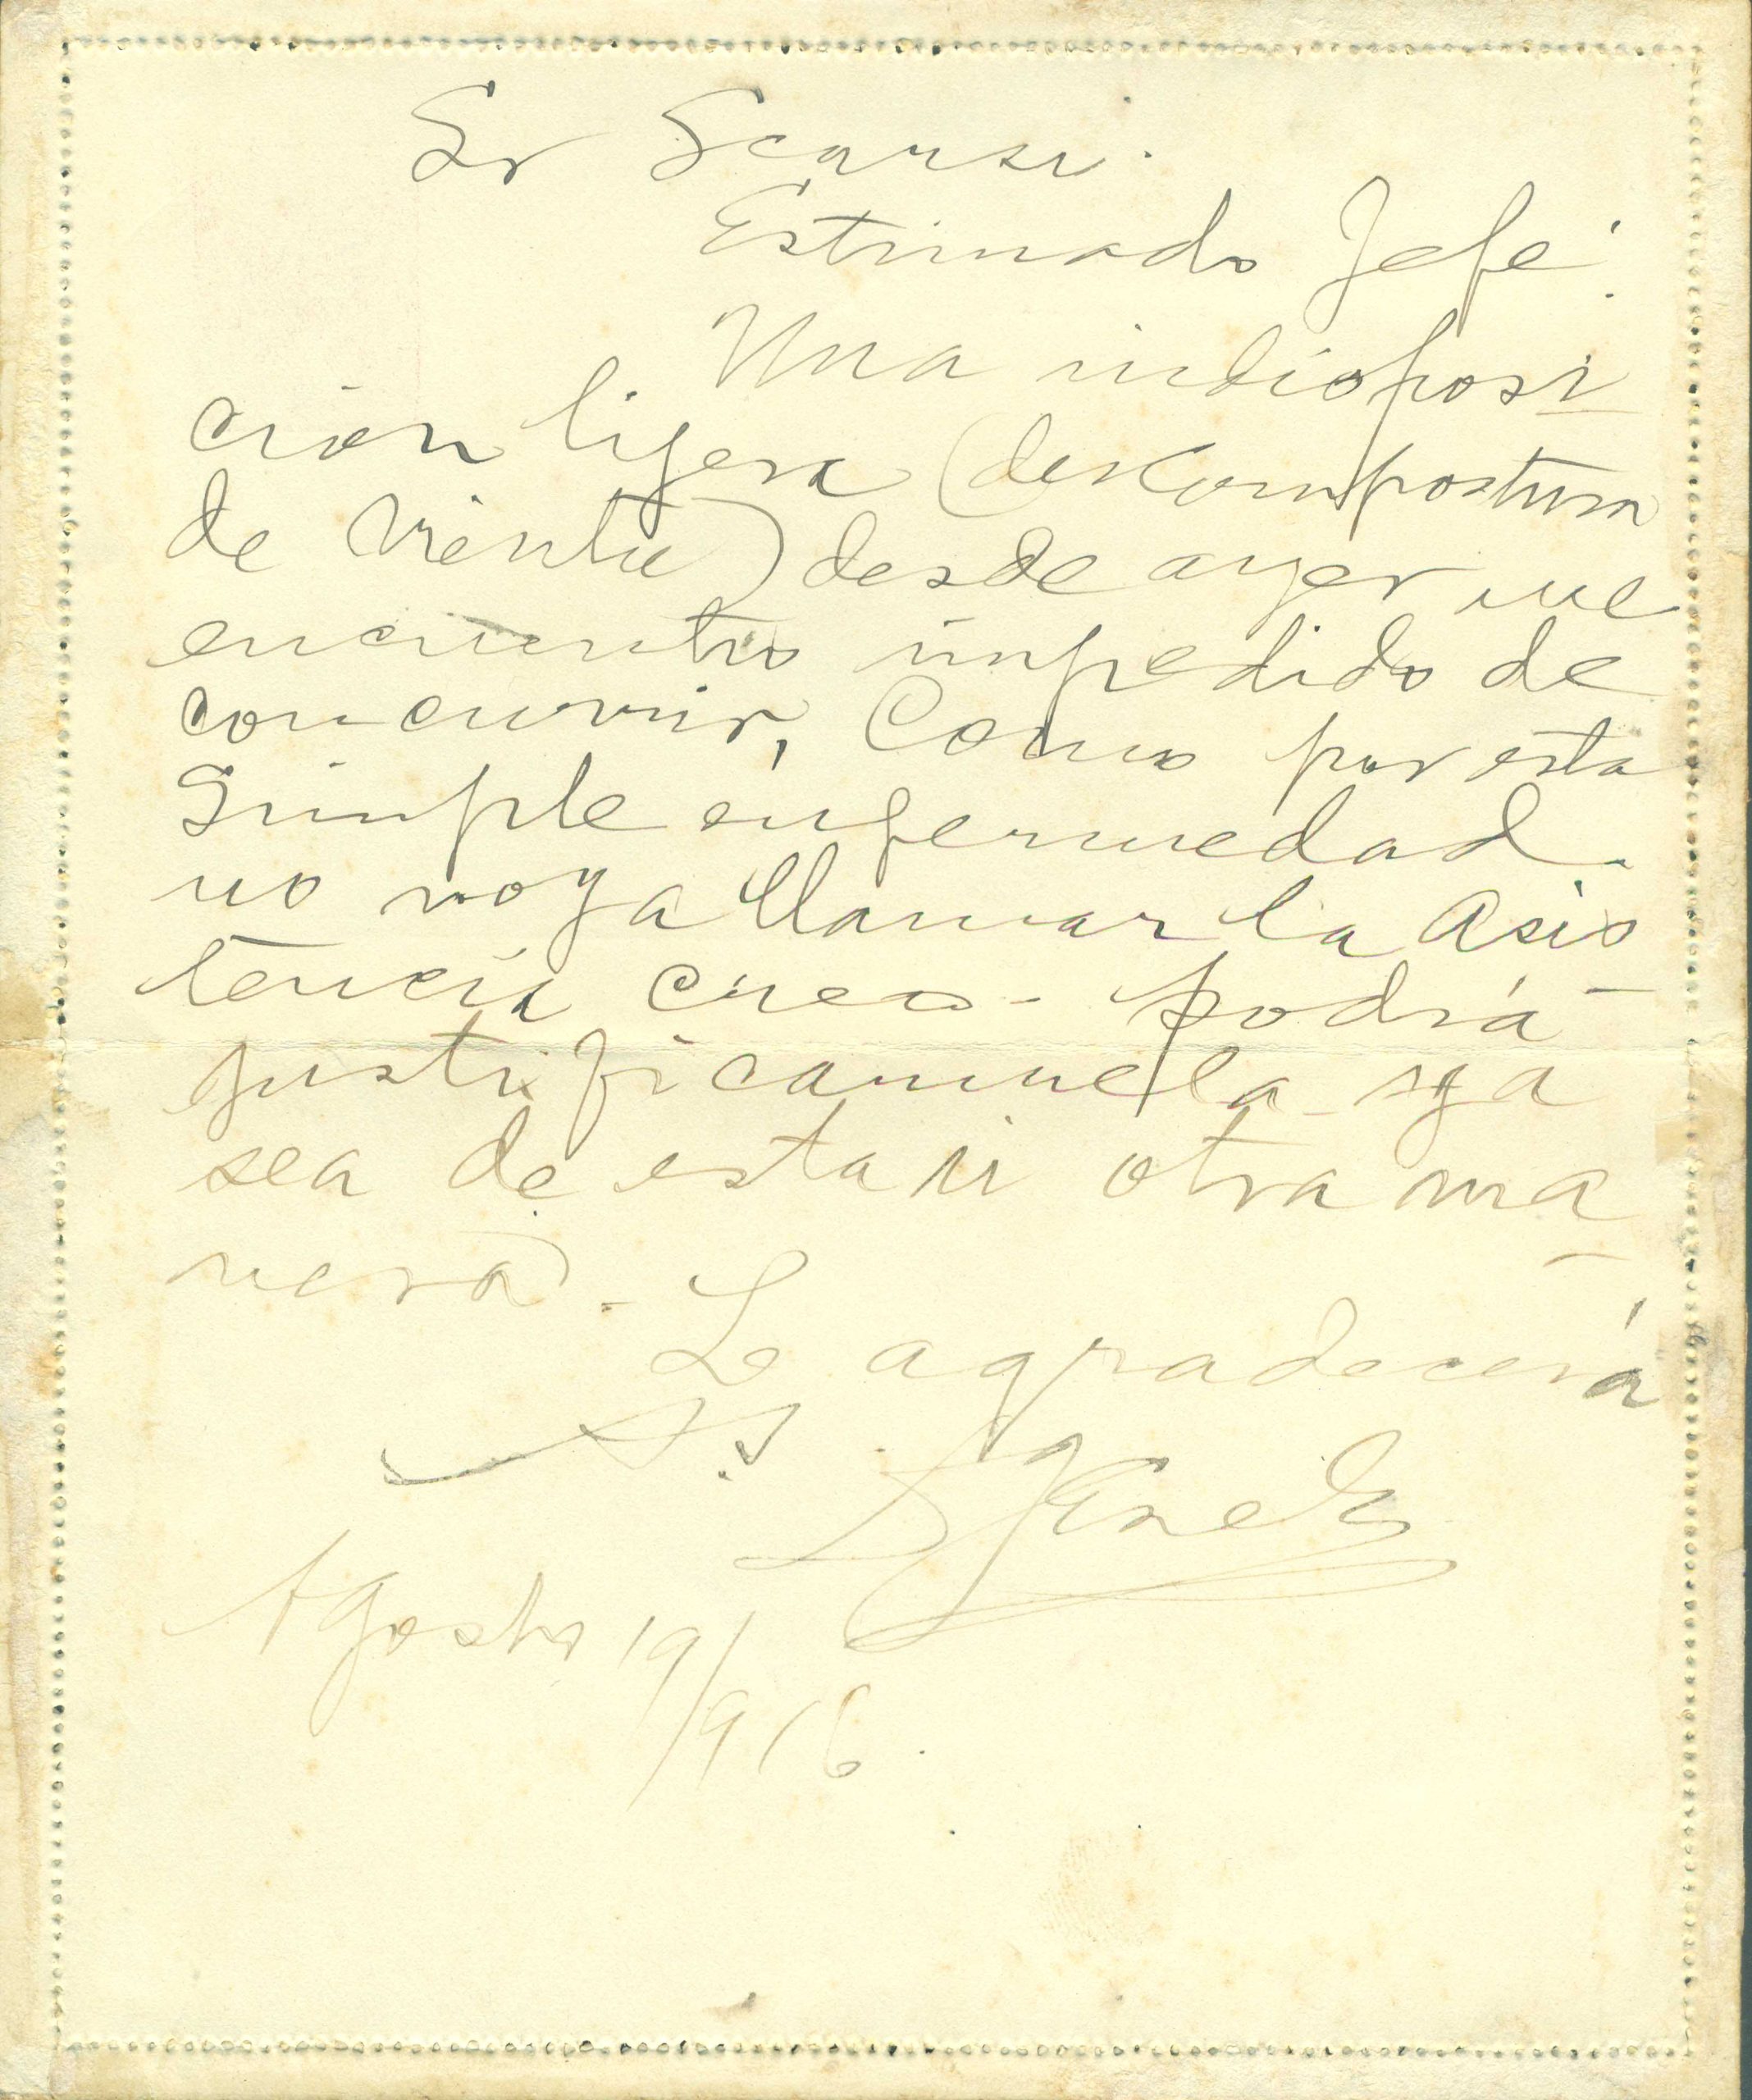 Sr Scarsi.
Estimado Jefe:
Una indisposi
ción ligera (descompostura
de vientre) desde ayer me
encuentro impedido de
concurrir, Como por esta
simple enfermedad
no voy a llamar la asis
tencia creo podrá
justificarmela ya
sea de esta u otra ma
nera. -
Le agradecerá
S. S.
Agosto 19/916.